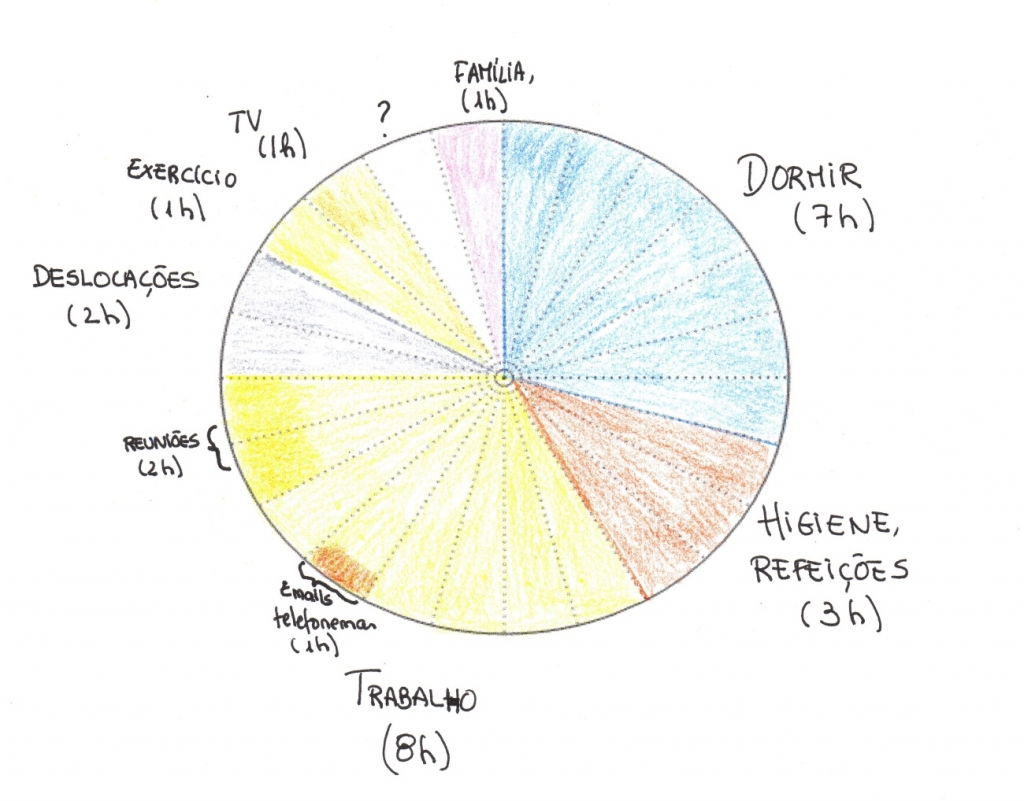 FAMÍLIA,
(1h)
?
TV
(1h)
EXERCÍCIO
(1h)
DESLOCAÇÕES
(2h)
REUNIÕES
(2h)
Emails
telefonemas
(1h)
TRABALHO
(8h)
DORMIR
(7h)
HIGIENE,
REFEIÇÕES
(3h)